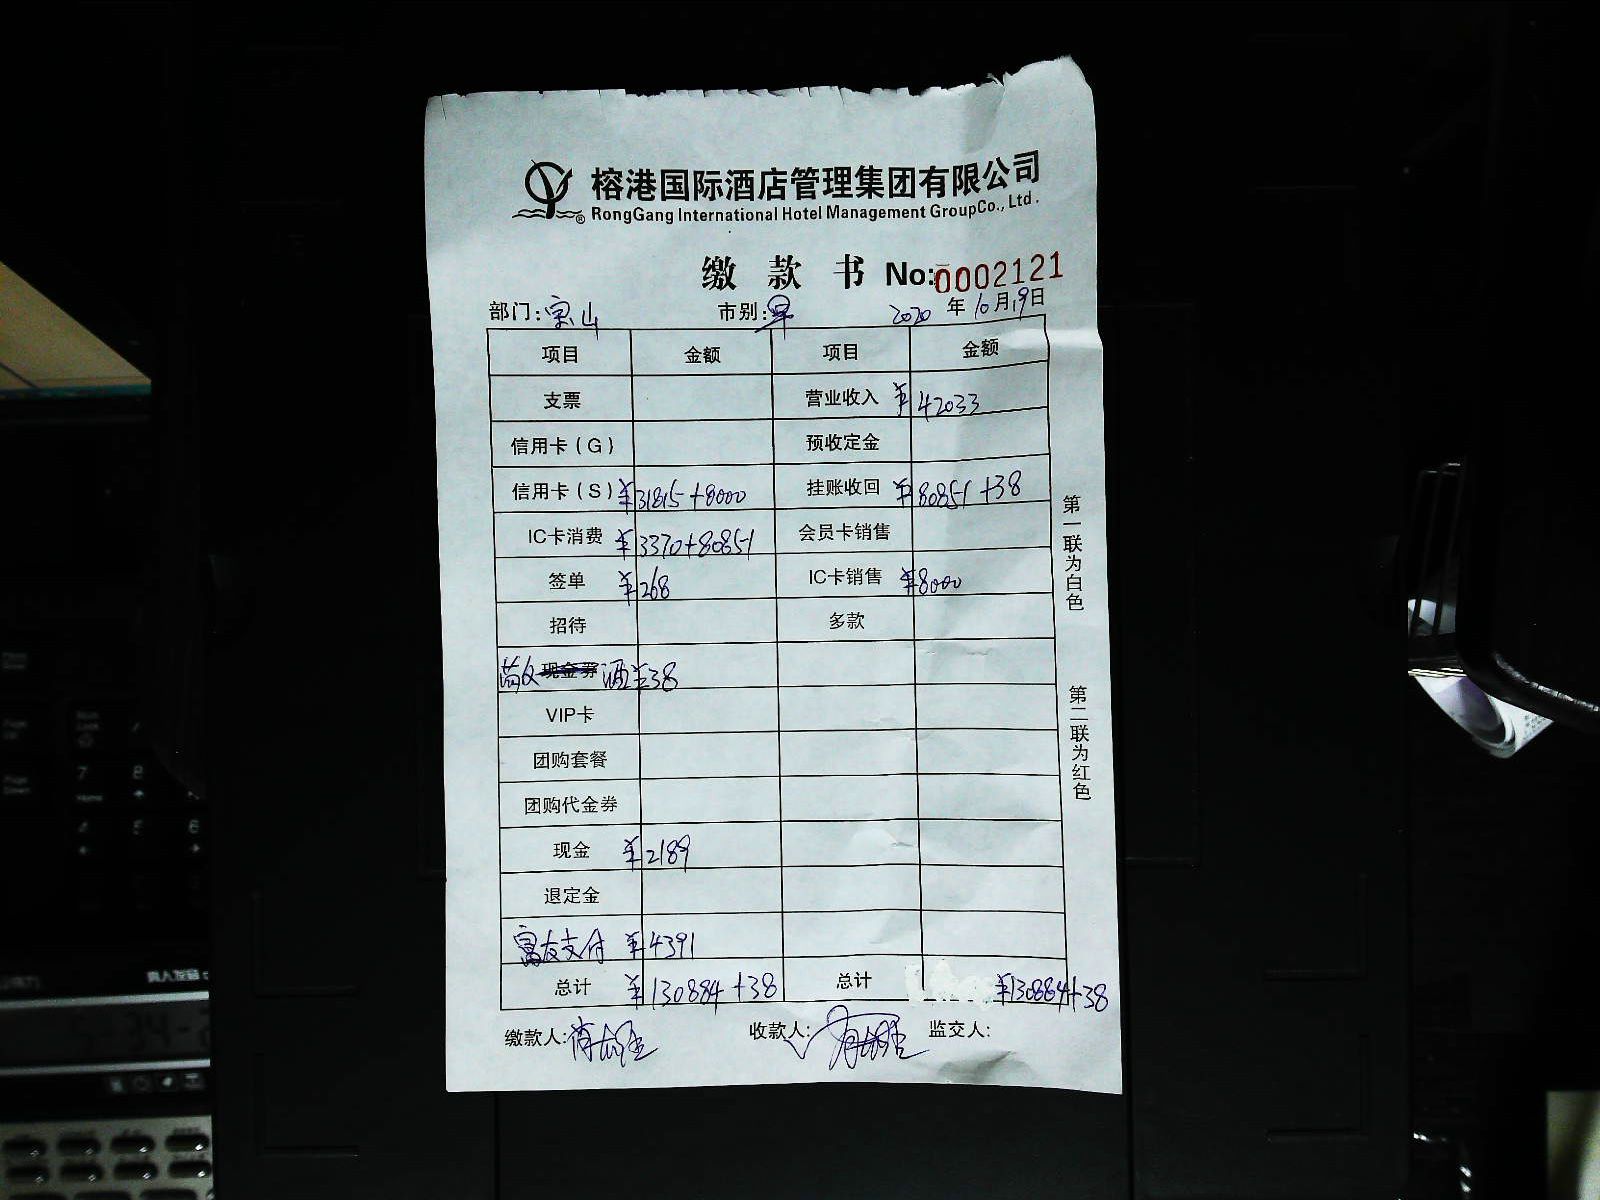 榕港国际酒店管理集团有限公司
RongGang International Hotel Management GroupCo., Ltd.
缴款书 No:0002121
部门:宗山 市别:早 2020年10月19日
项目 金额 项目 金额
支票 营业收入 ¥42033
信用卡(G) 预收定金
信用卡(S) ¥31815+8000 挂账收回 ¥80851+38
IC卡消费 ¥3370+80851 会员卡销售
签单 ¥268 IC卡销售 ¥8000
招待 多款
现金券 酒 ¥38
VIP卡
团购套餐
团购代金券
现金 ¥2189
退定金
富友支付 ¥4391
总计 ¥130884+38 总计 ¥130884+38
缴款人: 收款人: 监交人:
第一联为白色
第二联为红色